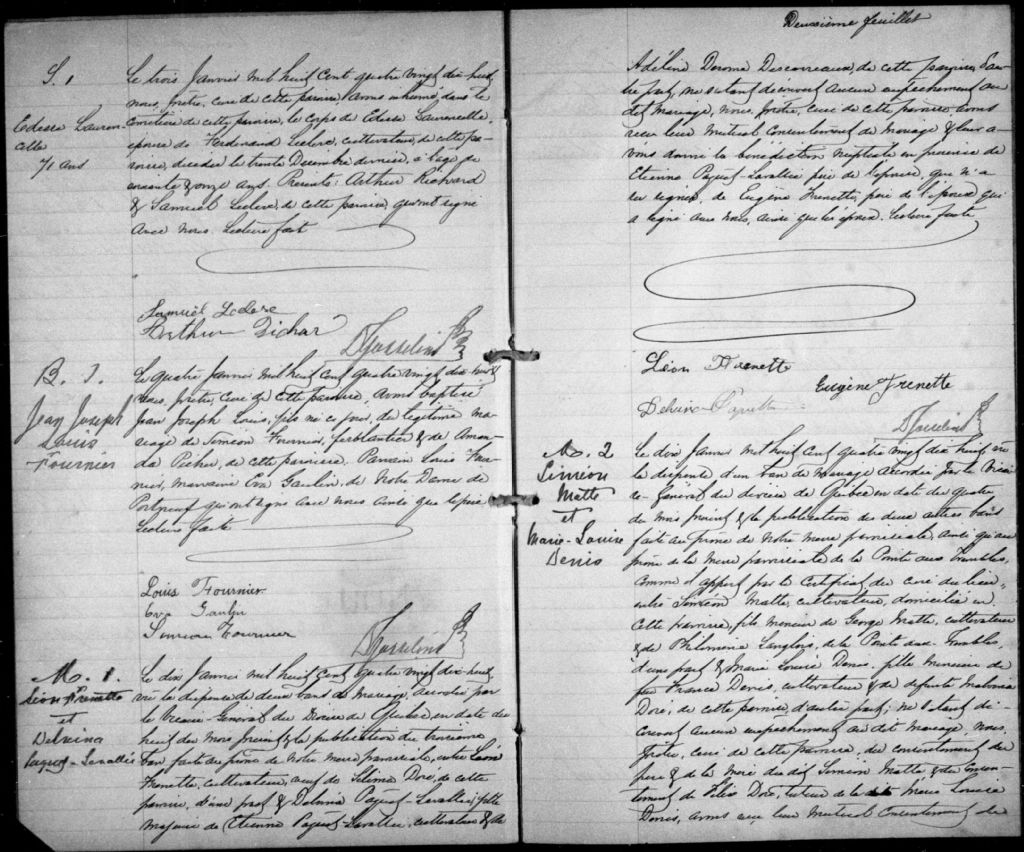 S. 1
Edesse Lauren-
celle
71 ans
Le trois Janvier mil huit cent quatre vingt dix huit,
nous, prêtre, curé de cette paroisse, avons inhumé dans le
cimetière de cette paroisse, le corps de Edesse Laurencelle,
épouse de Ferdinand Leclerc, cultivateur, de cette pa-
roisse, décédée le trente Décembre dernier, à l'age de
soixante & onze ans. Présents: Arthur Richard
& Samuel Leclerc, de cette paroisse, qui ont signé
avec nous. Lecture faite
Samuel Leclerc
Arthur Richar
DGosselin Ptr
B. 1.
Jean Joseph
Louis
Fournier
Le quatre Janvier mil huit cent quatre vingt dix huit
nous, prêtre, curé de cette paroisse, avons baptisé
Jean Joseph Louis, fils né ce jour, du légitime ma-
riage de Siméon Fournier, ferblantier & de Aman-
da Picher, de cette paroisse. Parrain Louis Four-
nier, marraine Eva Gaulin, de Notre Dame de
Portneuf qui ont signé avec nous ainsi que le père
Lecture faite
Louis Fournier
Eva Gaulin
Simeon Fournier
DGosselin Ptr
M. 1.
Léon Frenette
et
Delvina
Paquet-Lavallée
Le dix Janvier mil huit cent quatre vingt dix huit
vu la dispense de deux bans de mariage accordée par
le Vicaire-Général du Diocèse de Québec en date du
huit du mois présent & la publication du troisième
ban faite au prône de notre messe paroissiale, entre Léon
Frenette, cultivateur, veuf de Délima Doré, de cette
paroisse, d'une part & Delvina Paquet-Lavallée, fille
majeure de Etienne Paquet-Lavallée, cultivateur & de
Deuxième feuillet
Adéline Derome Descarreaux, de cette paroisse, d'au-
tre part, ne s'étant découvert aucun empêchement au
dit mariage, nous, prêtre, curé de cette paroisse, avons
reçu leur mutuel consentement de mariage & leur a-
vons donné la bénédiction nuptiale en présence de
Etienne Paquet-Lavallée père de l'épouse, qui n'a
su signer, de Eugène Frenette, père de l'époux qui
a signé avec nous, ainsi que les époux. Lecture faite
Léon Frenette
Eugène Frenette
DGosselin Ptr
M. 2
Siméon
Matte
et
Marie-Louise
Denis
Le dix Janvier mil huit cent quatre vingt dix huit vu
la dispense d'un ban de mariage accordée par le Vicai-
re-Général du diocèse de Québec en date du quatre
du mois présent & la publication des deux autres bans
faite au prône de notre messe paroissiale, ainsi qu'au
prône de la messe paroissiale de la Pointe aux Trembles,
comme il appert par le certificat du curé du lieu,
entre Siméon Matte, cultivateur, domicilié en
cette paroisse, fils mineur de George Matte, cultivateur
& de Philomène Langlois, de la Pointe aux Trembles,
d'une part & Marie Louise Denis, fille mineure de
feu France Denis, cultivateur & de défunte
Doré, de cette paroisse, d'autre part; ne s'étant dé-
couvert aucun empêchement au dit mariage, nous,
prêtre, curé de cette paroisse, du consentement du
père & de la mère du dit Siméon Matte, & du consen-
tement de Félix Doré, tuteur de la dite Marie Louise
Denis, avons reçu leur mutuel consentement de